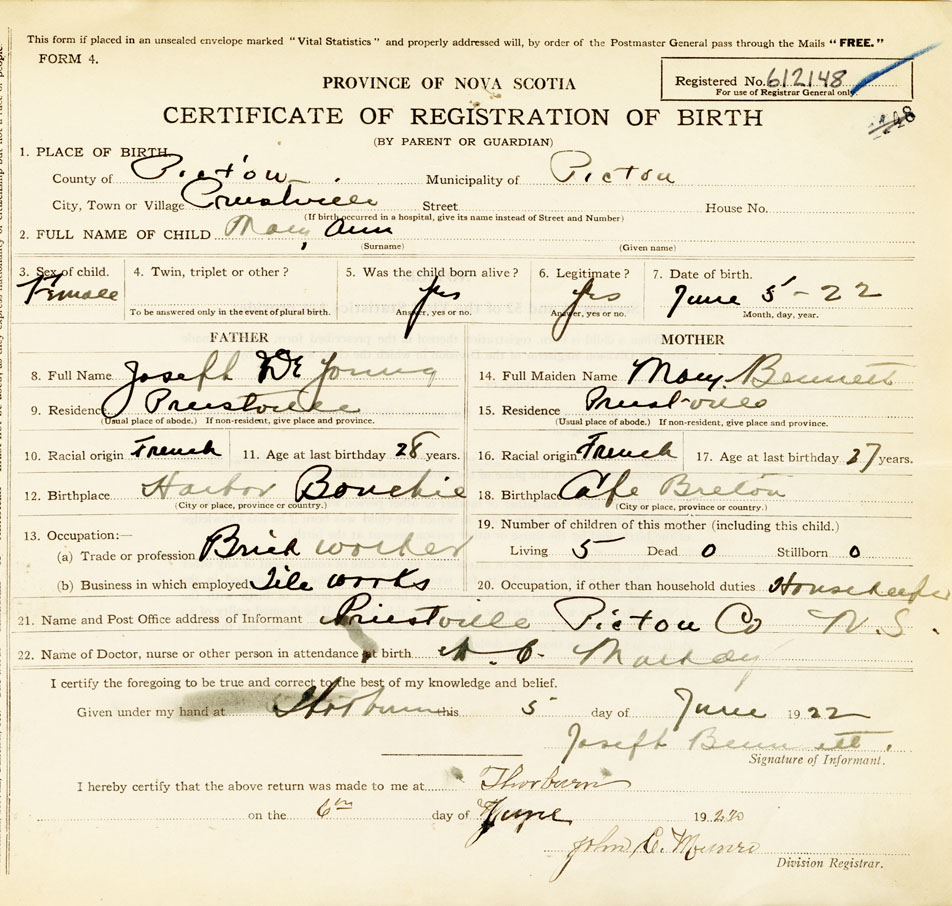 This form if placed in an unsealed envelope marked "Vital Statistics" and properly addressed will, by order of the Postmaster General pass through the Mails "FREE."
FORM 4.
Registered No. 612148
For use of Registrar General only
PROVINCE OF NOVA SCOTIA
CERTIFICATE OF REGISTRATION OF BIRTH
(BY PARENT OR GUARDIAN)
1. PLACE OF BIRTH
County of Pictou Municipality of Pictou
City, Town or Village Street House No.
(If birth occurred in a hospital, give its name instead of Street and Number)
2. FULL NAME OF CHILD Mary Ann
(Surname) (Given name)
3. Sex of child. 4. Twin, triplet or other? 5. Was the child born alive? 6. Legitimate? 7. Date of birth.
Female yes yes June 5 - 22
To be answered only in the event of plural birth. Answer, yes or no. Answer, yes or no. Month, day, year.
FATHER MOTHER
8. Full Name Joseph De Young 14. Full Maiden Name Mary Bennett
9. Residence 15. Residence
(Usual place of abode.) If non-resident, give place and province. (Usual place of abode.) If non-resident, give place and province.
10. Racial origin French 11. Age at last birthday 28 years. 16. Racial origin French 17. Age at last birthday 27 years.
12. Birthplace Harbor Bouchie 18. Birthplace Cape Breton
(City or place, province or country.) (City or place, province or country.)
13. Occupation:— 19. Number of children of this mother (including this child.)
(a) Trade or profession Brick worker Living 5 Dead 0 Stillborn 0
(b) Business in which employed Tile works 20. Occupation, if other than household duties Housekeeper
21. Name and Post Office address of Informant Priestville Pictou Co N.S.
22. Name of Doctor, nurse or other person in attendance at birth
I certify the foregoing to be true and correct to the best of my knowledge and belief.
Given under my hand at Thorburn this 5 day of June 1922
Joseph Bennett.
Signature of Informant.
I hereby certify that the above return was made to me at Thorburn
on the 6th day of June 19
John C. Munro
Division Registrar.